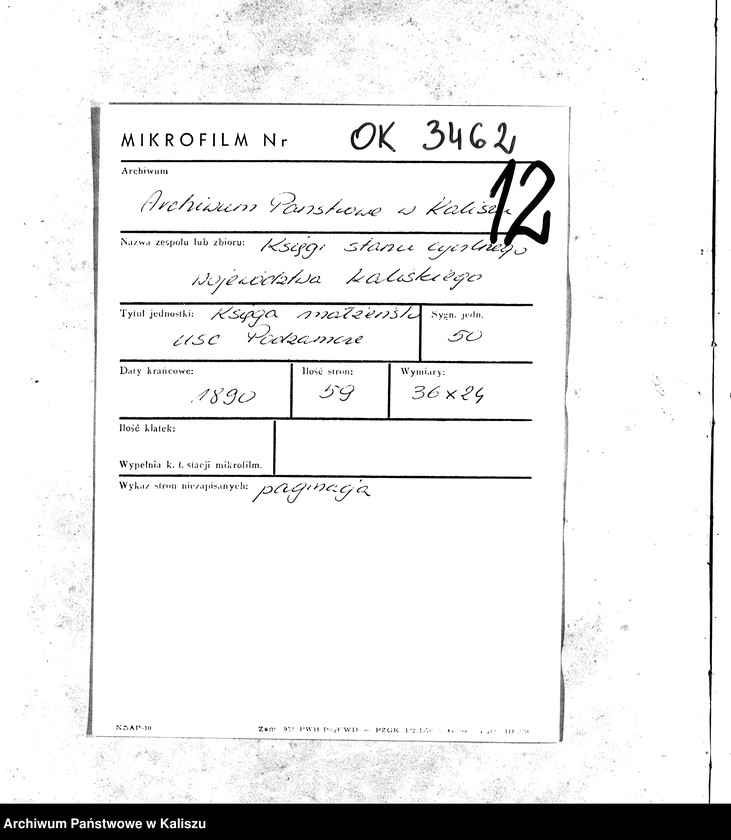 MIKROFILM Nr OK 3462
12
Archiwum
Archiwum Państwowe w Kaliszu
Nazwa zespołu lub zbioru: Księgi stanu cywilnego
województwa kaliskiego
Tytuł jednostki: Księga małżeństw
USC Podzamcze
Sygn. jedn.
50
Daty krańcowe:
1890
Ilość stron:
59
Wymiary:
36x24
Ilość klatek:
Wypełnia k. t. stacji mikrofilm.
Wykaz stron niezapisanych: paginacja
NDAP-10
Zam. PZGK
Archiwum Państwowe w Kaliszu